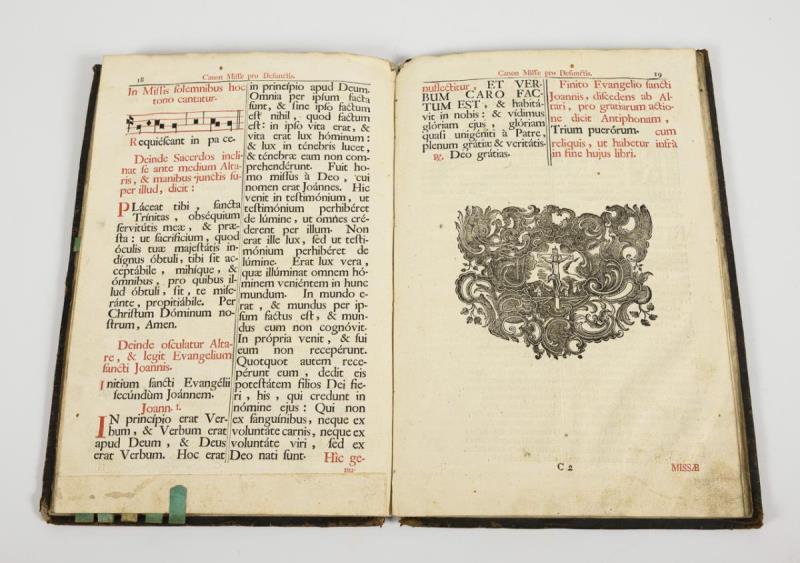 18
Canon Missæ pro Defunctis.
In Missis solemnibus hoc
tono cantatur.
Requiéscant in pa ce.
Deinde Sacerdos incli-
nat se ante medium Alta-
ris, & manibus junctis su-
per illud, dicit :
PLáceat tibi, sancta
Trínitas, obséquium
servitútis meæ, & præ-
sta : ut sacrifícium, quod
óculis tuæ majestátis in-
dígnus óbtuli, tibi sit ac-
ceptábile, mihíque, &
ómnibus, pro quibus il-
lud óbtuli, sit, te mise-
ránte, propitiábile. Per
Christum Dóminum no-
strum, Amen.
Deinde osculatur Alta-
re, & legit Evangelium
sancti Joannis.
Initium sancti Evangélii
secúndùm Joánnem.
Joann. 1.
IN princípio erat Ver-
bum, & Verbum erat
apud Deum, & Deus
erat Verbum. Hoc erat
in princípio apud Deum.
Omnia per ipsum facta
sunt, & sine ipso factum
est nihil, quod factum
est : in ipso vita erat, &
vita erat lux hóminum :
& lux in ténebris lucet,
& ténebræ eam non com-
prehendérunt. Fuit ho-
mo missus à Deo, cui
nomen erat Joánnes. Hic
venit in testimónium, ut
testimónium perhibéret
de lúmine, ut omnes cré-
derent per illum. Non
erat ille lux, sed ut testi-
mónium perhibéret de
lúmine. Erat lux vera,
quæ illúminat omnem hó-
minem veniéntem in hunc
mundum. In mundo e-
rat, & mundus per ip-
sum factus est, & mun-
dus eum non cognóvit.
In própria venit, & sui
eum non recepérunt.
Quotquot autem rece-
pérunt eum, dedit eis
potestátem filios Dei fie-
ri, his, qui credunt in
nómine ejus : Qui non
ex sanguínibus, neque ex
voluntáte carnis, neque ex
voluntáte viri, sed ex
Deo nati sunt. Hîc ge-
nu-
Canon Missæ pro Defunctis.
19
nuflectitur, ET VER-
BUM CARO FAC-
TUM EST, & habitá-
vit in nobis : & vídimus
glóriam ejus, glóriam
quasi unigéniti à Patre,
plenum grátiæ & veritátis.
℟. Deo grátias.
Finito Evangelio sancti
Joannis, discedens ab Al-
tari, pro gratiarum actio-
ne dicit Antiphonam,
Trium puerórum. cum
reliquis, ut habetur infrà
in fine hujus libri.
C 2
MISSÆ